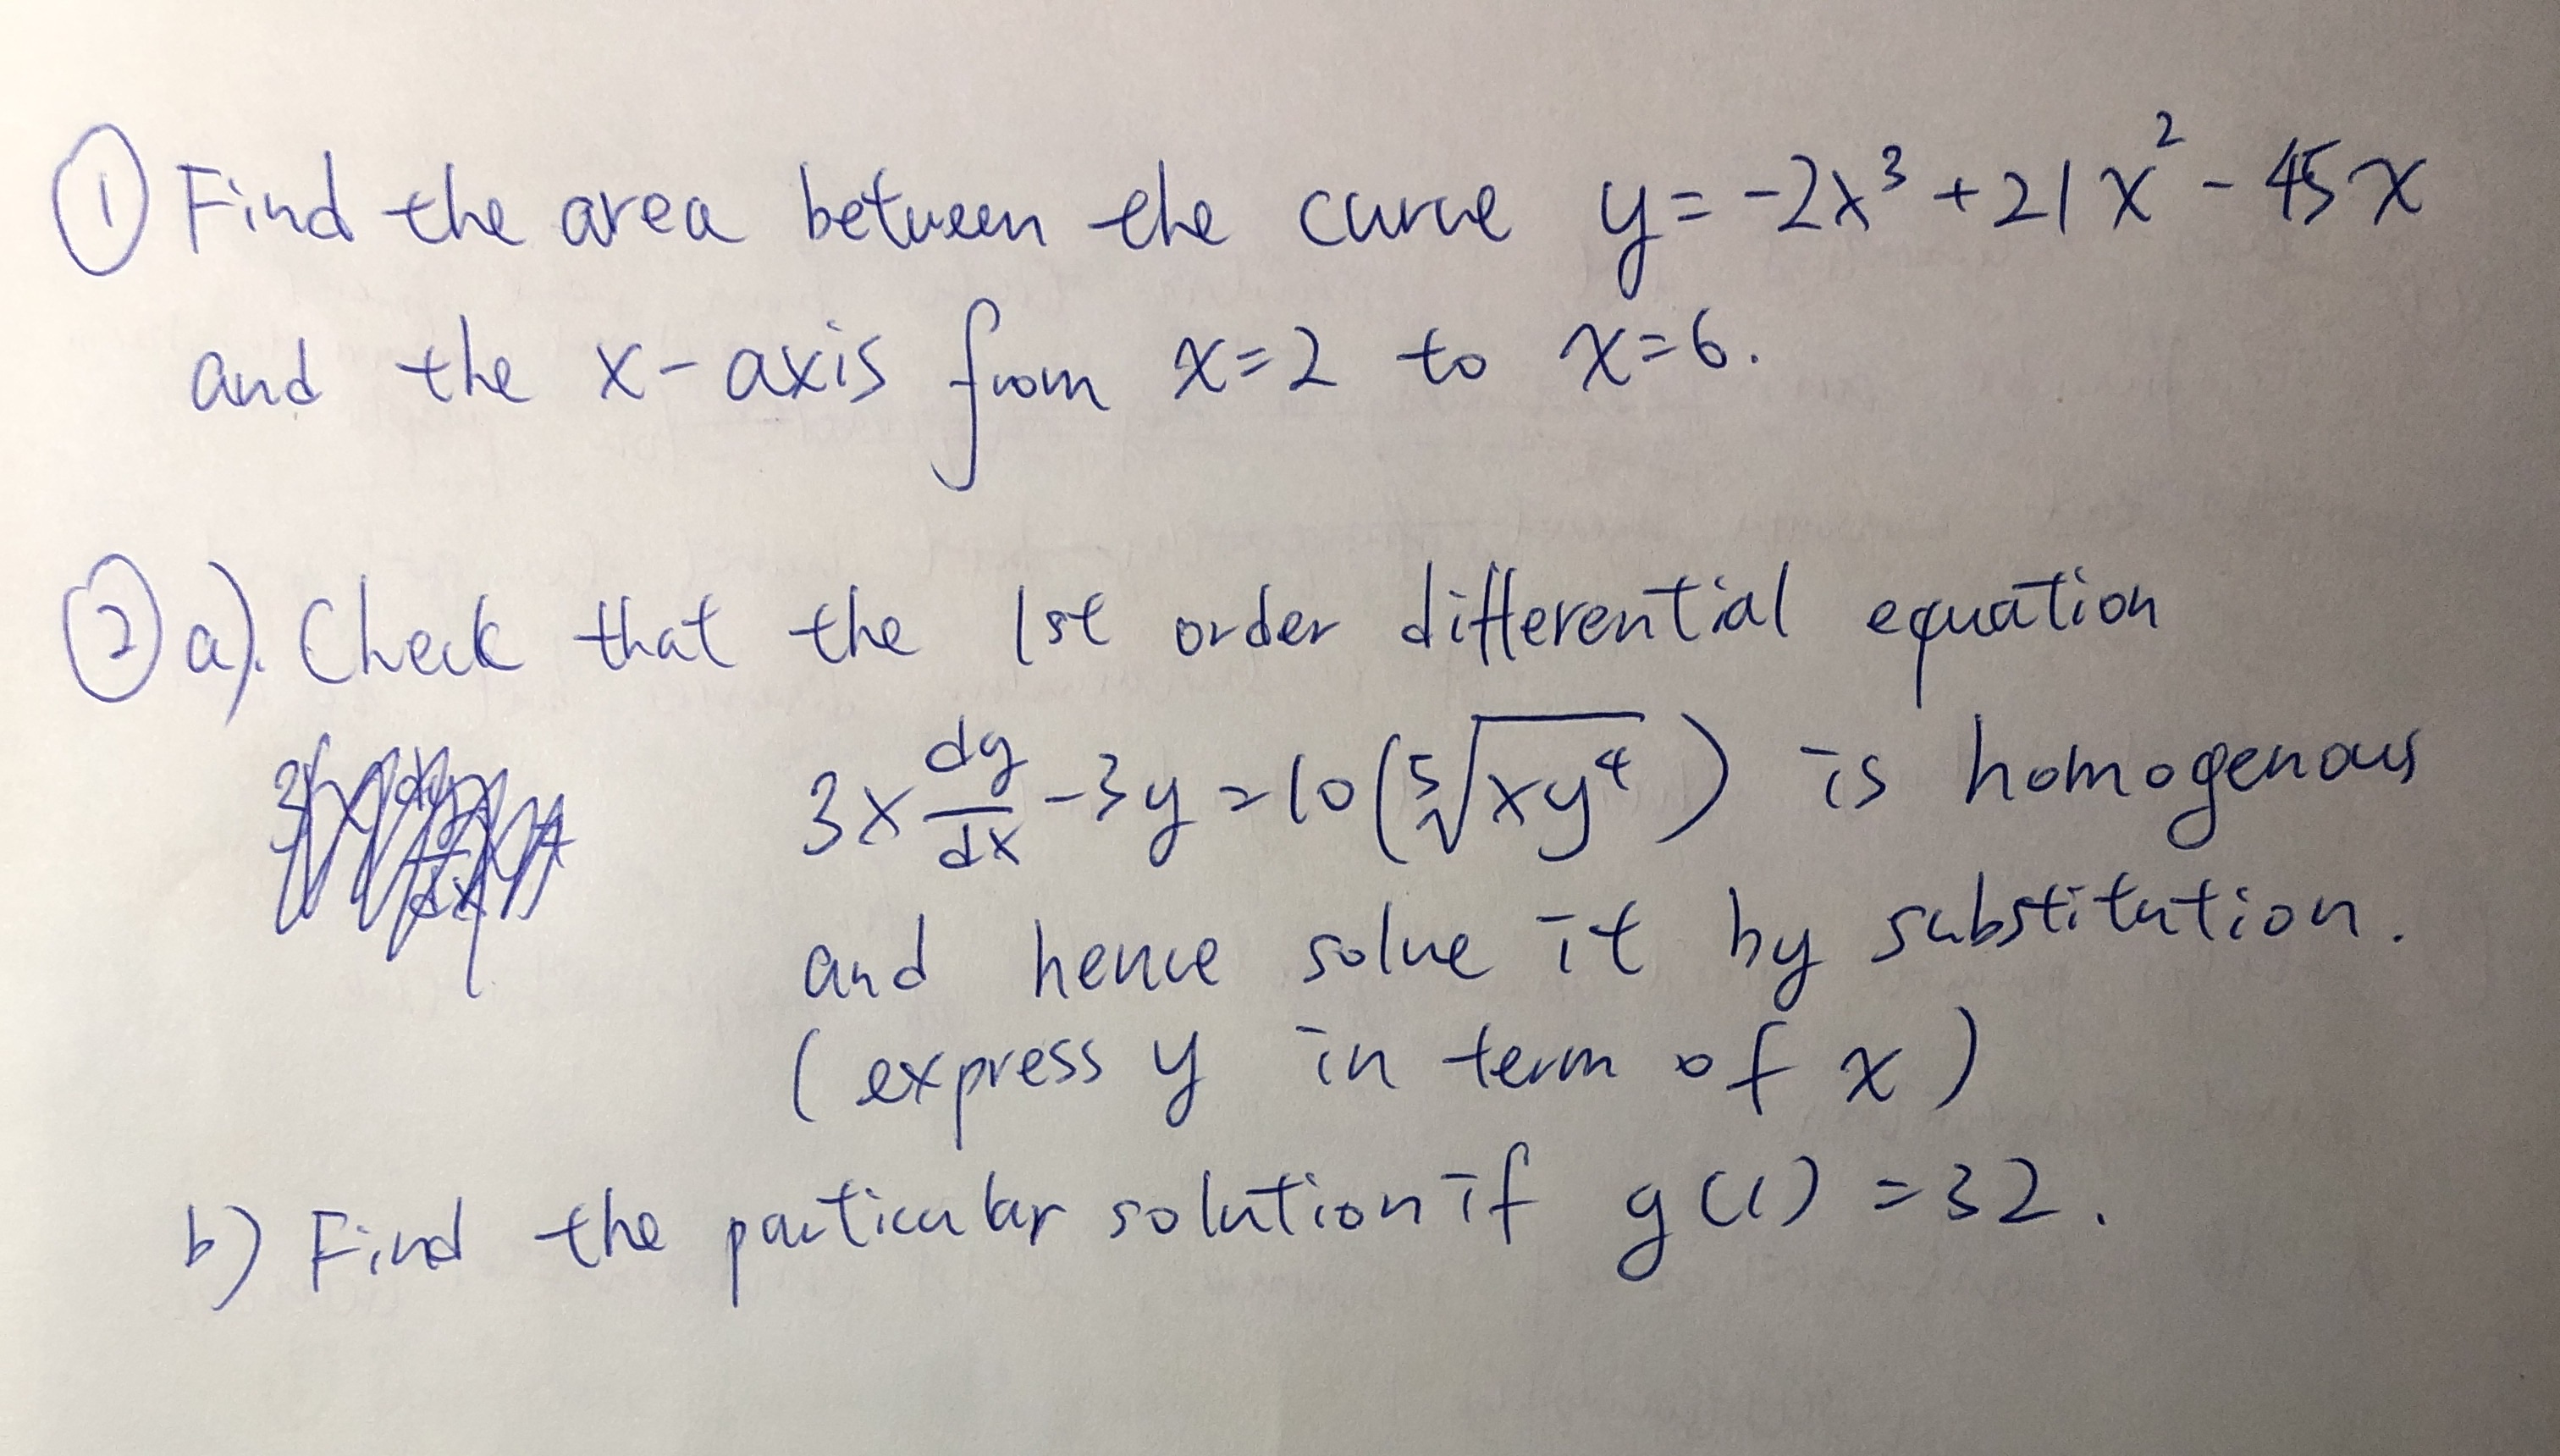 ① Find the area between the curve y = -2x³ + 21x² - 45x
and the x-axis from x=2 to x=6.
② a). Check that the 1st order differential equation
3x dy/dx - 3y = 10(⁵√(xy⁴)) is homogenous
and hence solve it by substitution.
(express y in term of x)
b) Find the particular solution if y(1) = 32.